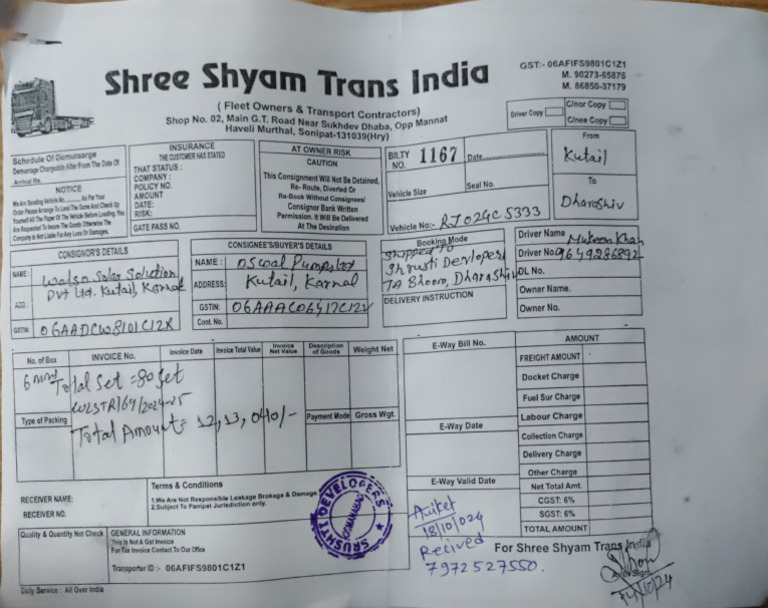 GST:- 06AFIFS9801C1Z1
M. 90273-65876
M. 86850-37179
Shree Shyam Trans India
( Fleet Owners & Transport Contractors)
Shop No. 02, Main G.T. Road Near Sukhdev Dhaba, Opp Mannat
Haveli Murthal, Sonipat-131039(Hry)
Driver Copy
C/nor Copy
C/nee Copy
Schedule Of Demuraarge
Demurrage Chargeable After From The Date Of
Arrival Rs.
NOTICE
We Are Sending Vehicle No. As Per Your
Order Please Arrange To Load The Same And Check Up
Yourself All The Paper Of The Vehicle Before Loading. You
Are Requested To Insure The Goods Otherwise The
Company Is Not Liable For Any Loss Or Damages.
INSURANCE
THE CUSTOMER HAS STATED
THAT STATUS :
COMPANY :
POLICY NO.
AMOUNT
DATE:
RISK:
GATE PASS NO.
AT OWNER RISK
CAUTION
This Consignment Will Not Be Detained,
Re- Route, Diverted Or
Re-Book Without Consignees/
Consignor Bank Written
Permission. It Will Be Delivered
At The Desination
BILTY NO. 1167 Date
Vehicle Size Seal No.
Vehicle No:- RJ02GC5333
From
Kutail
To
Dharashiv
CONSIGNOR'S DETAILS
NAME : Watso Solar Solution
Pvt Ltd. Kutail, Karnal
ADD :
GSTIN: 06AADCW8101C1ZR
CONSIGNEE'S/BUYER'S DETAILS
NAME : Oswal Pumps Ltd
ADDRESS: Kutail, Karnal
GSTIN:
Cont. No.
Booking Mode
Shipped to
Shrusti Devlopers
TA Bhoom, Dharashiv
DELIVERY INSTRUCTION
Driver Name Khan
Driver No. 9649286892
DL No.
Owner Name.
Owner No.
No. of Box
INVOICE No.
Invoice Date
Invoice Total Value
Invoice Net Value
Description of Goods
Weight Net
Total Set = 80 Set
/2024-25
Total Amount = 12,13,040/-
Type of Packing
Payment Mode
Gross Wgt.
E-Way Bill No.
E-Way Date
E-Way Valid Date
AMOUNT
FREIGHT AMOUNT
Docket Charge
Fuel Sur Charge
Labour Charge
Collection Charge
Delivery Charge
Other Charge
Net Total Amt.
CGST: 6%
SGST: 6%
TOTAL AMOUNT
RECEIVER NAME:
RECEIVER NO.
Terms & Conditions
1.We Are Not Responsible Leakage Brokage & Damage.
2.Subject To Panipat Jurtadiction only.
SRUSHTI DEVELOPERS
Aniket
18/10/024
Recived
7972527550.
Quality & Quantity Not Check
GENERAL INFORMATION
This Is Not A Gst Invoice
For Tax Invoice Contact To Our Office
Transporter ID :- 06AFIFS9801C1Z1
For Shree Shyam Trans India
Daily Service : All Over India